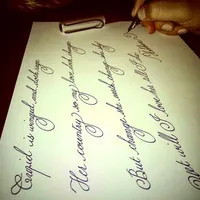 Cupid is winged and doth range
Her country so my love doth change
But change she earth, or change she sky
Yet will I love her till I die